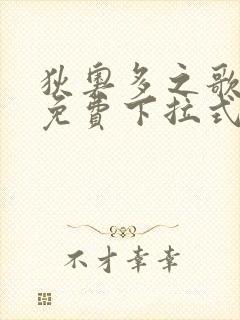 狄奥多之歌
免費下拉式
不才幸幸